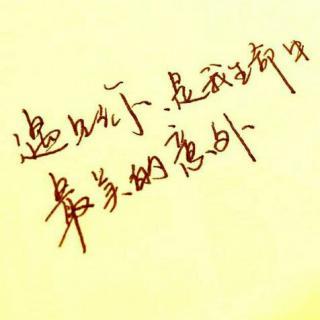 遇见你，是我生命中
最美的意外